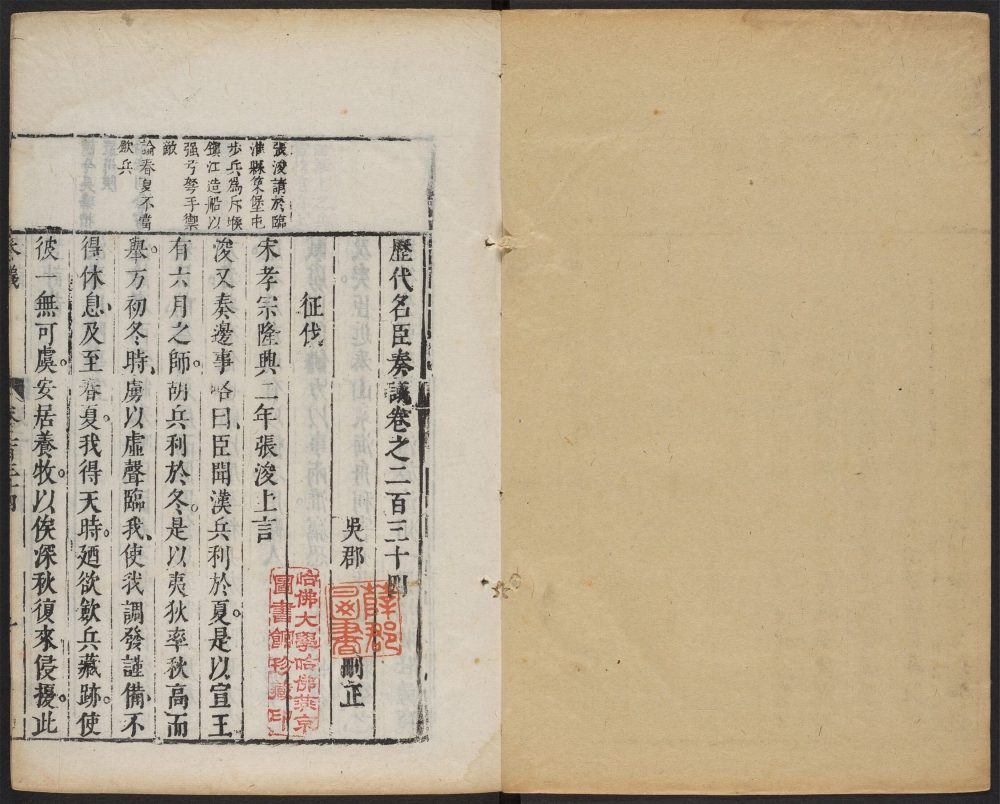 歷代名臣奏議卷之二百三十四
吳郡
刪正
征伐
宋孝宗隆興二年張浚上言
浚又奏邊事略曰臣聞漢兵利於夏。是以宣王
有六月之師。胡兵利於冬。是以夷狄率秋高而
舉。方初冬時。虜以虛聲臨我、使我調發謹備、不
得休息、及至春夏。我得天時。廼欲歛兵藏跡。使
彼一無可虞。安居養牧。以俟深秋復來侵擾。此
奏議
張浚請於臨
淮縣築堡屯
步兵爲斥堠
鎮江造船以
强弓弩手禦
敵
論春夏不當
歛兵
哈佛大學哈佛燕京
圖書館珍藏印
圖書